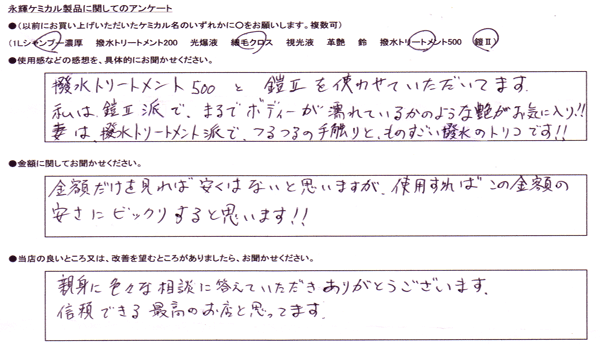 永輝ケミカル製品に関してのアンケート
●(以前にお買い上げいただいたケミカル名のいずれかに○をお願いします。複数可)
(1Lシャンプー濃厚 撥水トリートメント200 光爆液 繊毛クロス 視光液 革艶 鈴 撥水トリートメント500 鎧Ⅱ)
●使用感などの感想を、具体的にお聞かせください。
撥水トリートメント500と鎧Ⅱを使わせていただいてます。
私は、鎧Ⅱ派で、まるでボディーが濡れているかのような艶がお気に入り!!
妻は、撥水トリートメント派で、つるつるの手触りと、ものすごい撥水のトリコです!!
●金額に関してお聞かせください。
金額だけを見れば安くはないと思いますが、使用すればこの金額の
安さにビックリすると思います!!
●当店の良いところ又は、改善を望むところがありましたら、お聞かせください。
親身に色々な相談に答えていただきありがとうございます。
信頼できる最高のお店と思ってます。